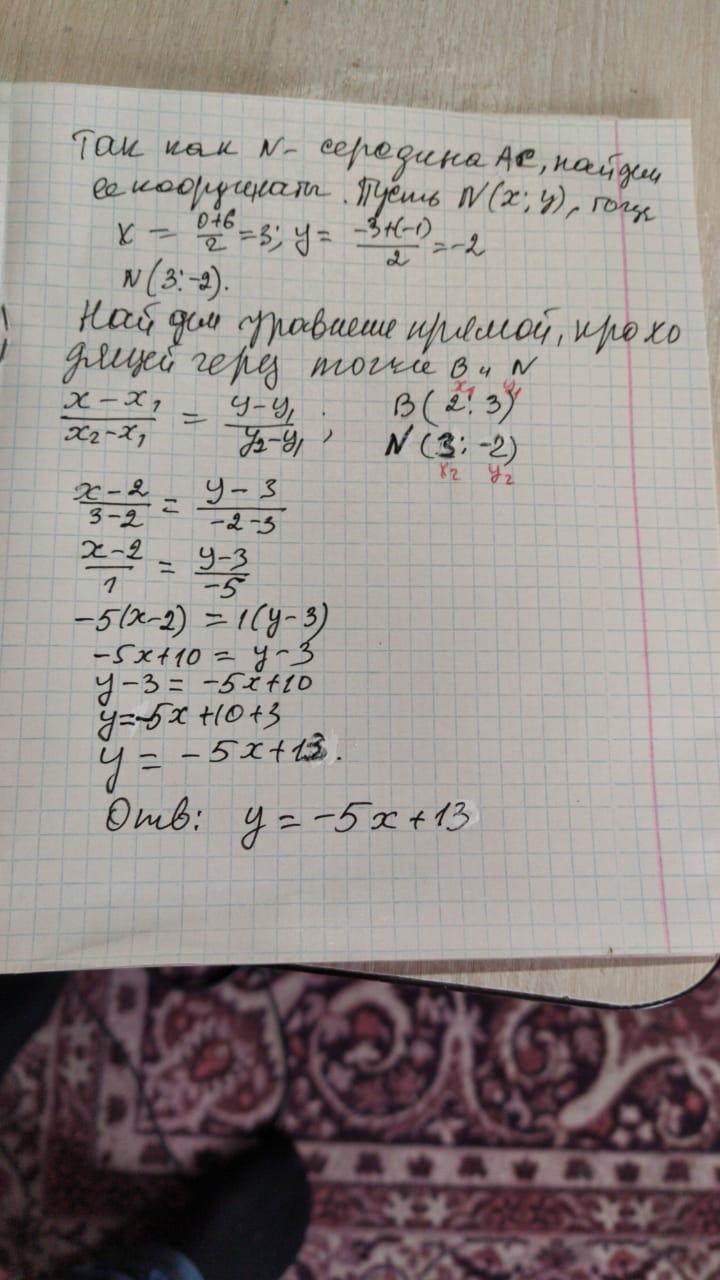 Так как N- середина AC, найдем
ее координаты. Пусть N(x; y), тогда
x = 0+6/2 = 3; y = -3+(-1)/2 = -2
N(3; -2).
Найдем уравнение прямой, прохо
дящей через точки B и N
x-x₁/x₂-x₁ = y-y₁/y₂-y₁; B(2; 3) x₁ y₁
N(3; -2) x₂ y₂
x-2/3-2 = y-3/-2-3
x-2/1 = y-3/-5
-5(x-2) = 1(y-3)
-5x+10 = y-3
y-3 = -5x+10
y=-5x+10+3
y = -5x+13.
Отв: y = -5x+13